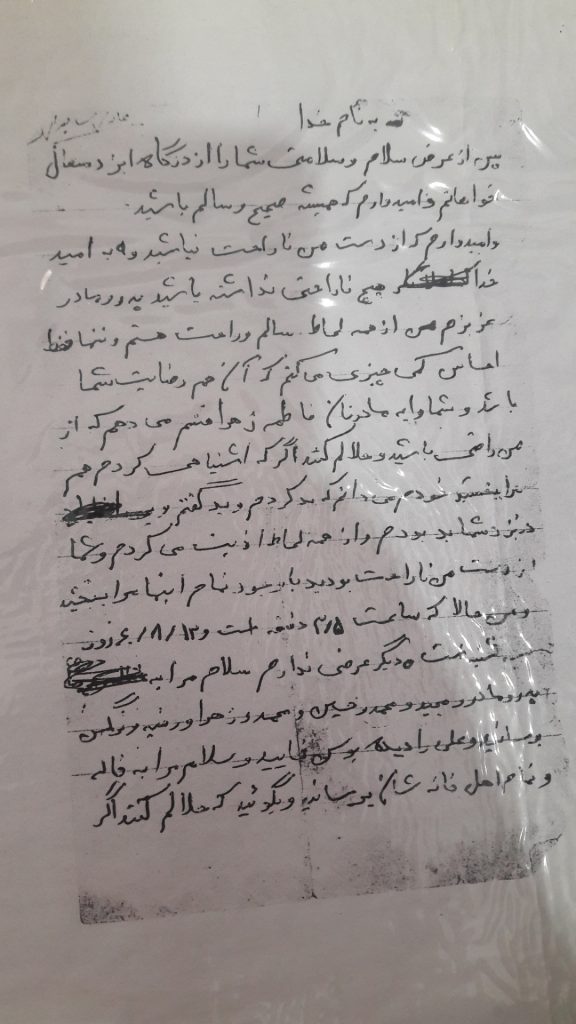 به نام خدا
پس از عرض سلام و سلامتی شما را از درگاه ایزد متعال
خواهانم و امیدوارم که همیشه صحیح و سالم باشید.
و امیدوارم که از دست من ناراحت نباشید و به امید
خدا هیچ ناراحتی نداشته باشید پدر و مادر
عزیزم من از همه لحاظ سالم و راحت هستم و تنها فقط
احساس کمی چیزی می کنم که آن هم رضایت شما
باشد و شما را به مادرتان فاطمه زهرا قسم می دهم که از
من راضی باشید و حلالم کنید اگر که اشتباهی کردم هم
مرا ببخشید خودم می دانم که بد کردم و بد گفتم و
در نزد شما بد بودم و از همه لحاظ اذیت می کردم و شما
از دست من ناراحت بودید با وجود تمام اینها مرا ببخشید
و من حالا که ساعت ۳/۵ دقیقه است و ۸/۱۳/ روز
است دیگر عرضی ندارم سلام مرا به
پدر و مادر و مجید و محمد حسین و محمد و زهرا و رقیه و نرگس
برسانید و علی را دیده بوس نمایید و سلام مرا به خاله
و تمام اهل خانه شان برسانید و بگوئید که حلالم کنند اگر